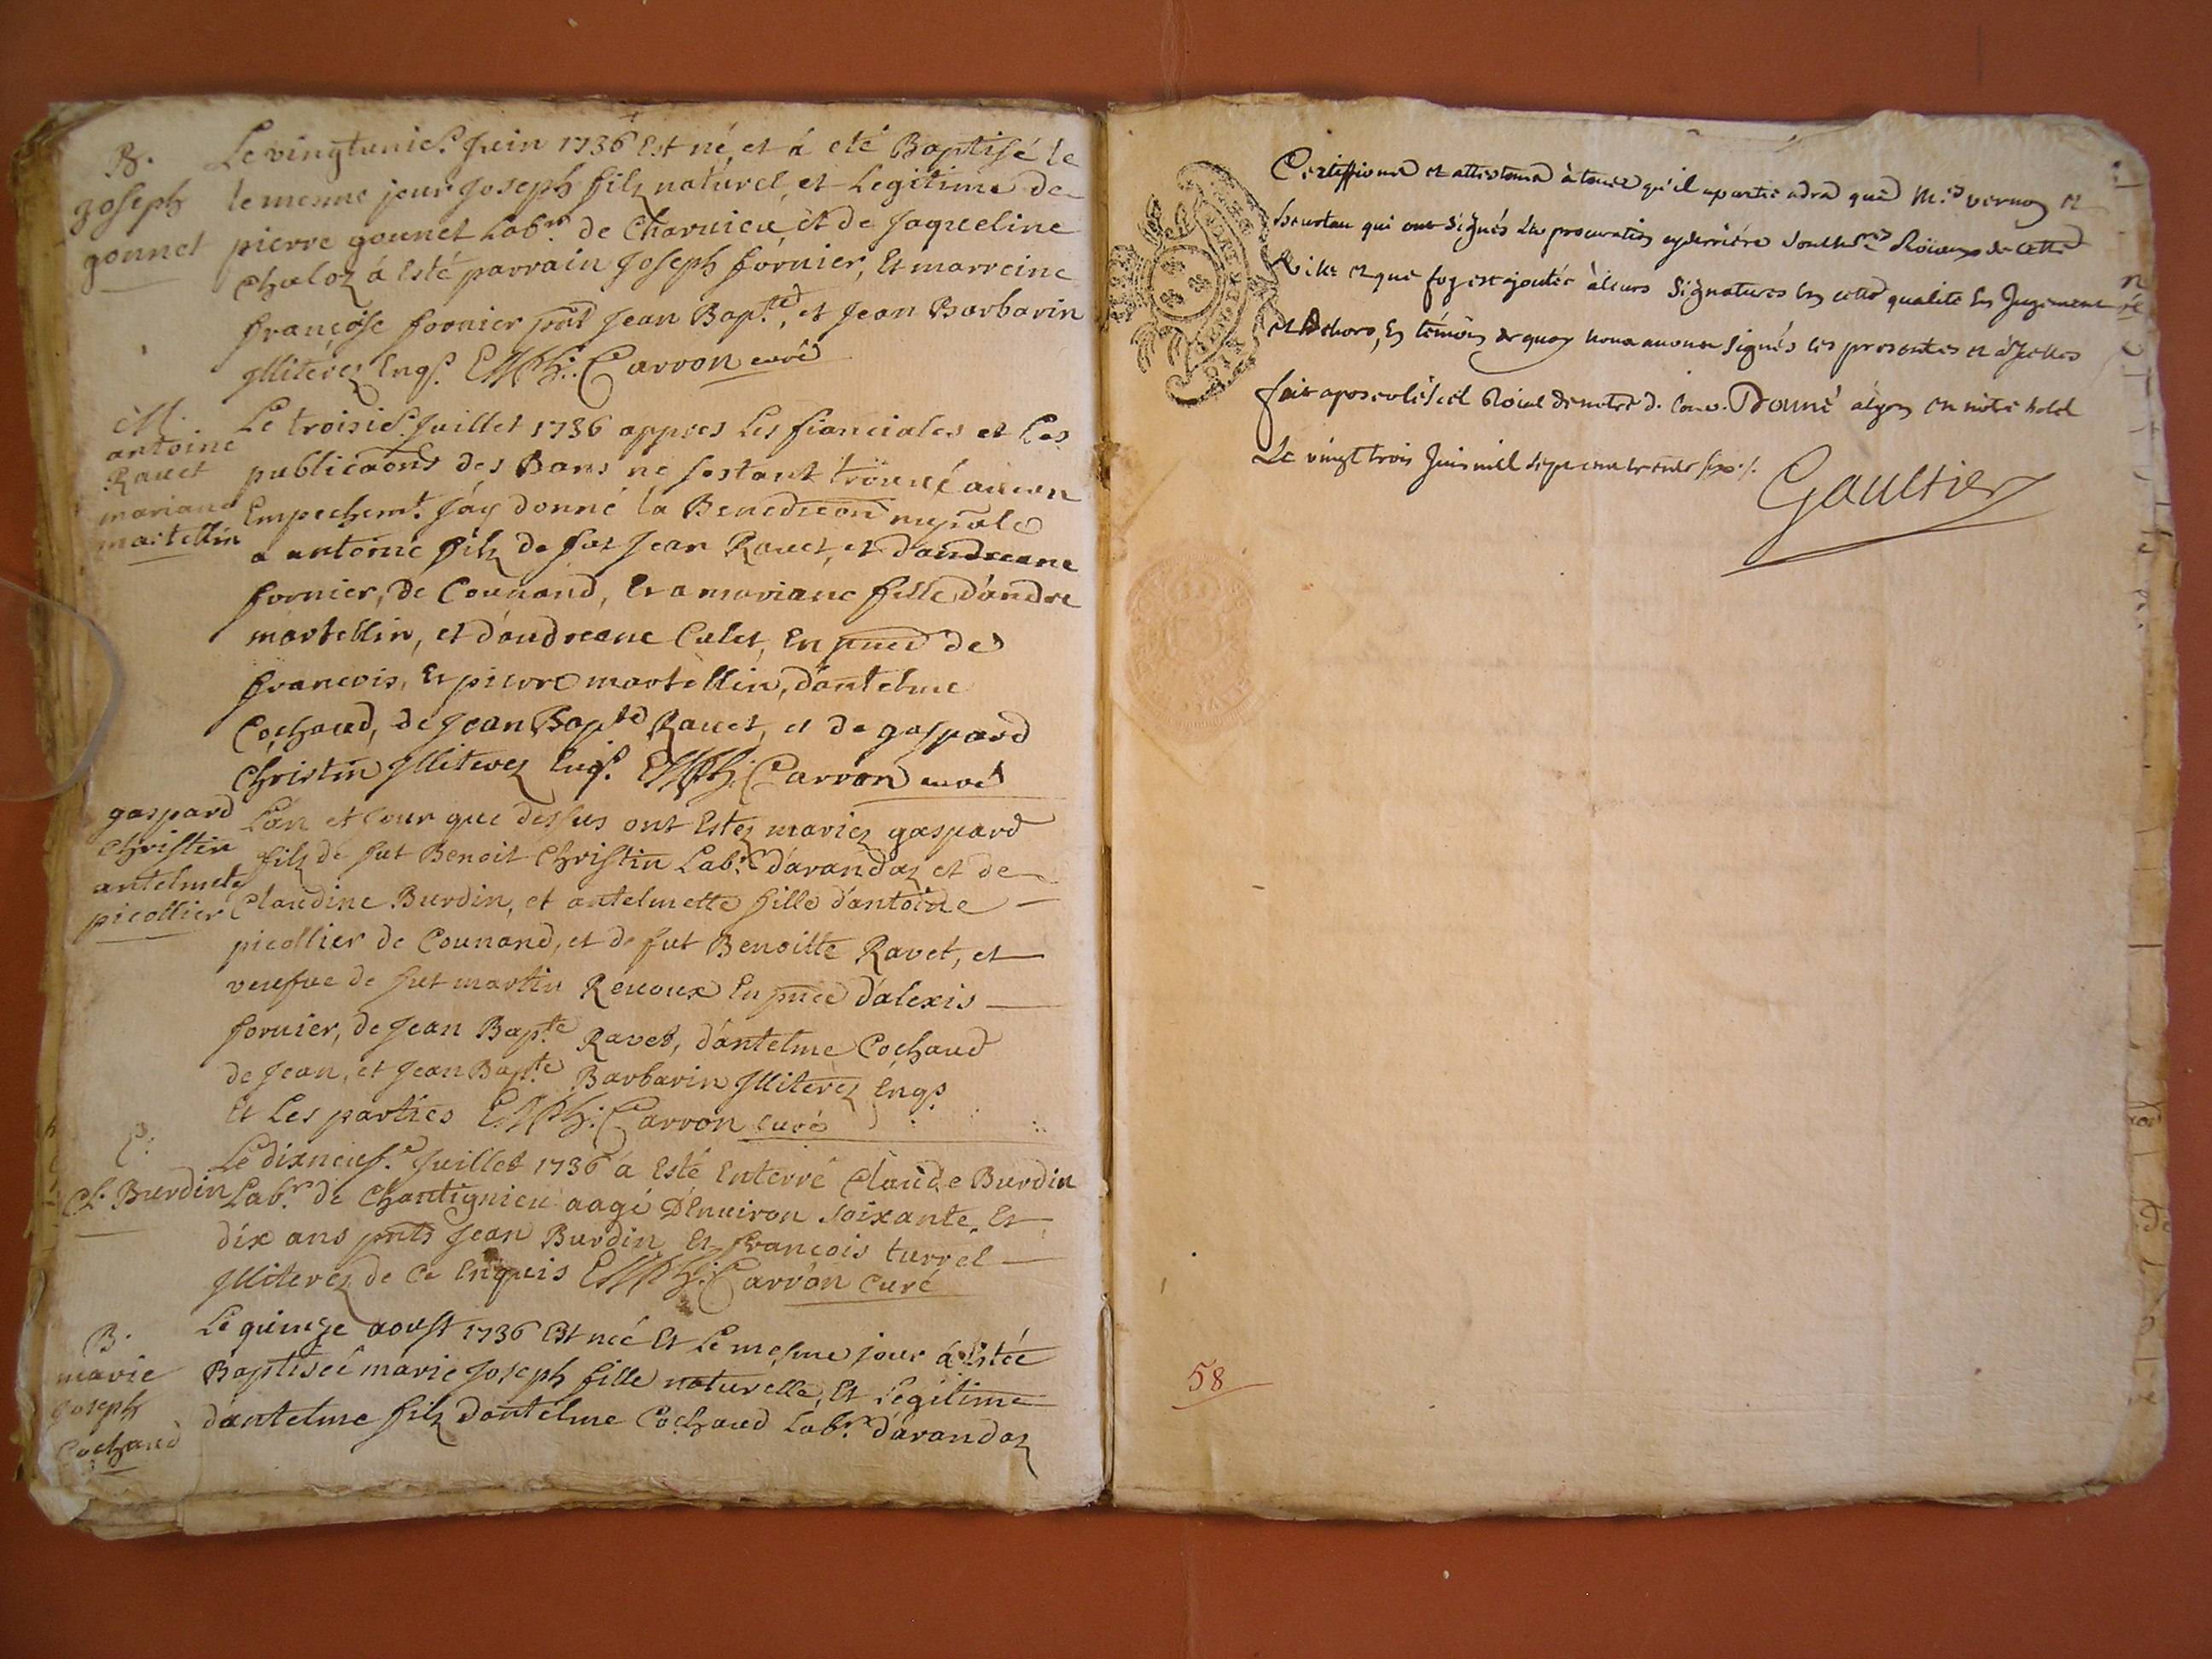 B.
Joseph
gonnet
Le vingtunie.e Juin 1736 Est né, et à eté Baptisé le
le mesme jour Joseph filz naturel, et Legitime de
pierre gonnet Lab.r de Charvieu, et de Jaqueline
Chaloz à Esté parrain Joseph fornier, Et marreine
françoise fornier pnt Jean Bap.te, et Jean Barbarin
Illiterez Enqs. Carron curé
M.
antoine
Ravet
mariane
martellin
Le troisie.e Juillet 1736 appres Les fianciales et Les
publicaons des Bans ne sestant trouvé aucun
Empechem.t J'ay donné la Benediction nupale
a antoine filz de fut Jean Ravet, et d'andreane
fornier, de Counand, Et a mariane fille d'andre
martellin, et d'andreane Culet, En pnce de
francois, Et pierre martellin, d'antelme
Cochaud, de Jean Bap.te Ravet, et de gaspard
Christin Illiterez Enqs. Carron curé
gaspard
Christin
antelmete
picollier
L'an et Jour que dessus ont Estez mariez gaspard
filz de fut Benoit Christin Lab.r d'arandaz et de
Claudine Burdin, et antelmette fille d'antoine
picollier de Counand, et de fut Benoitte Ravet, et
veufue de fut martin Renoux En pnce d'alexis
fornier, de Jean Bap.te Ravet, d'antelme Cochaud
de Jean, et Jean Bap.te Barbarin Illiterez Enqs.
Et Les parties Carron curé
Cl. Burdin
Le dixneuf.e Juillet 1736 à Esté Enterré Claude Burdin
Lab.r de Chantignieu aagé D'Enuiron soixante, Et
dix ans pnts Jean Burdin, Et francois turrel
Illiterez de ce Enquis Carron curé
B.
marie
Joseph
Cochaud
Le quinze aoust 1736 Est née Et Le mesme jour à Estée
Baptisée marie Joseph fille naturelle, Et Legitime
d'antelme filz d'antelme Cochaud Lab.r d'arandaz
Certiffions et attestons à tous qu'il apartiendra que M.es vernon et
qui ont signés la procuration cyderriére sont Roiaux de cette
Ville et que foy est ajoutée à leurs signatures En cette qualité En Jugement
et dehors, En témoin de quoy nous avons signés ces presentes et à Icelles
fait aposer le scel Roial de notre d. Donné à lyon en notre hotel
Le vingt trois Juin mil sept cent trente six
Gaultier
58